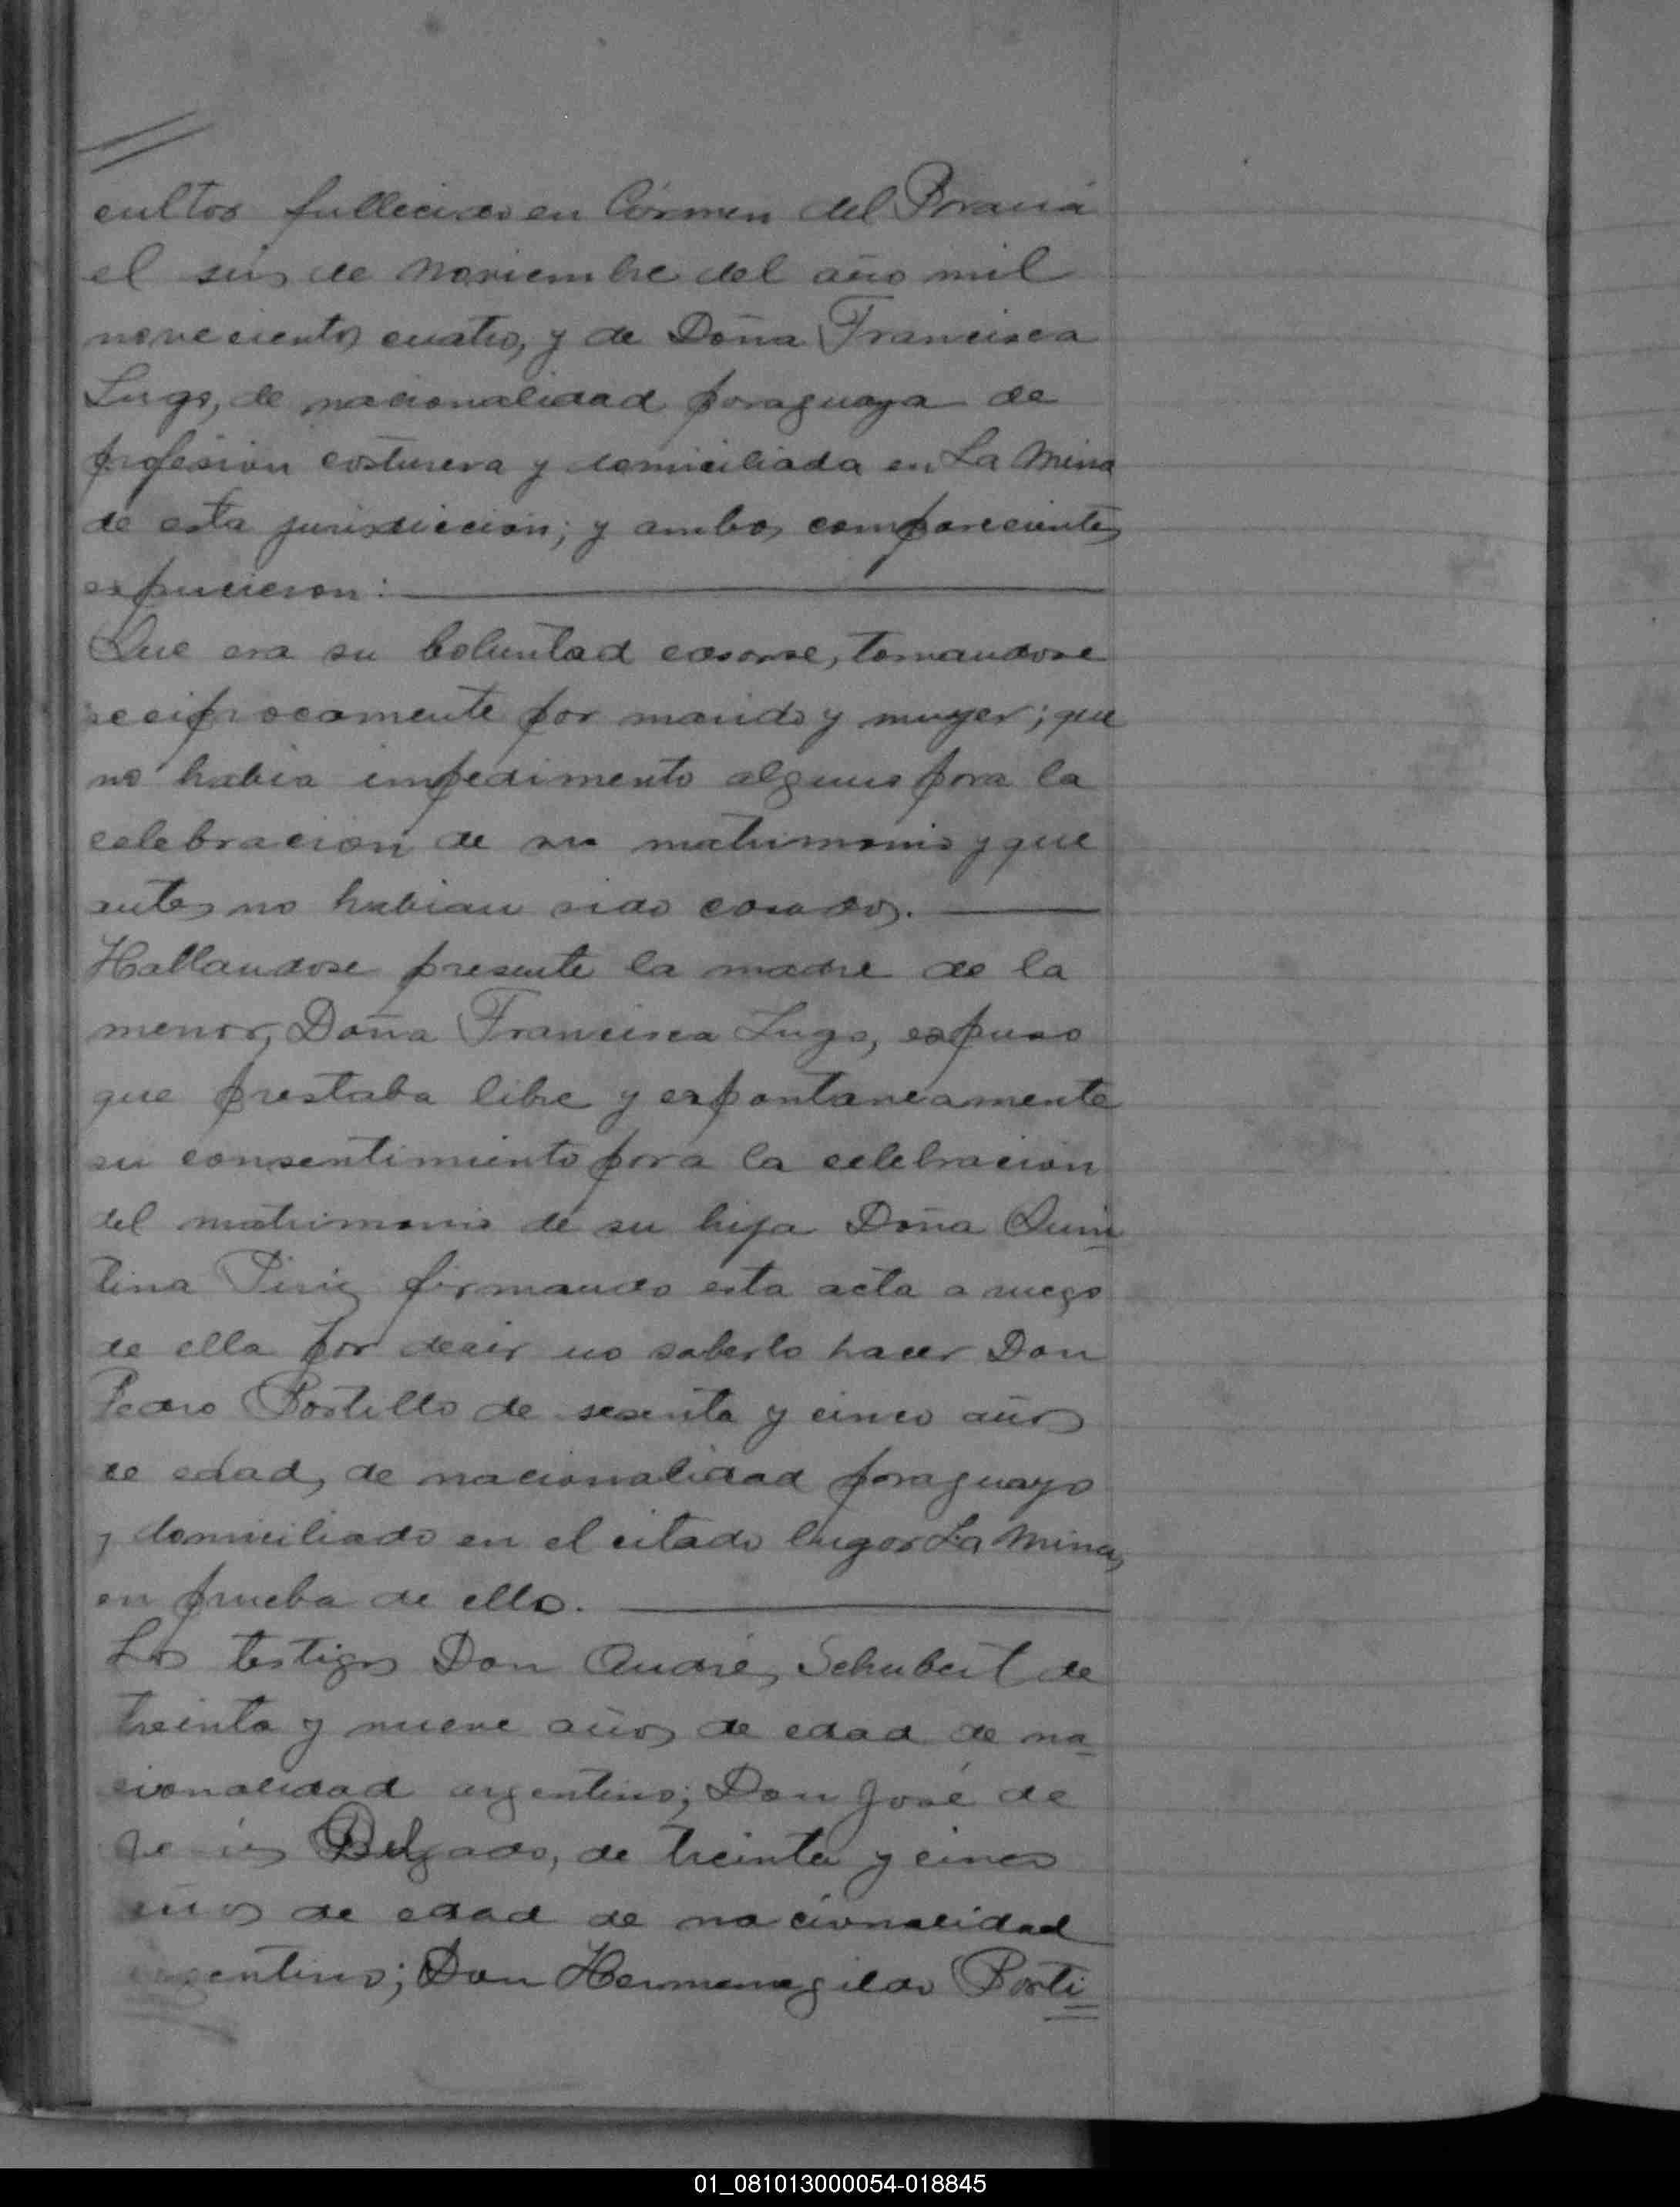 cultor fallecido en Cármen del Paraná
el seis de Noviembre del año mil
novecientos cuatro, y de Doña Francisca
Lugo, de nacionalidad paraguaya de
profesion costurera y domiciliada en La Mina
de esta jurisdiccion; y ambos comparecientes
expucieron:
Que era su boluntad casarse, tomandose
reciprocamente por marido y muger; que
no habia impedimento alguno para la
celebracion de su matrimonio y que
antes no habian sido casados.
Hallandose presente la madre de la
menor, Doña Francisca Lugo, expuso
que prestaba libre y expontaneamente
su consentimiento para la celebracion
del matrimonio de su hija Doña Quin
tina Piriz firmando esta acta a ruego
de ella por decir no saberlo hacer Don
Pedro Portillo de sesenta y cinco años
de edad, de nacionalidad paraguayo
y domiciliado en el citado lugar La Mina,
en prueba de ello.
Los testigos Don Andrés Schubert de
treinta y nueve años de edad de na
cionalidad argentino; Don José de
Jesús Delgado, de treinta y cinco
años de edad de nacionalidad
argentino; Don Hermenegildo Porti
01_081013000054-018845